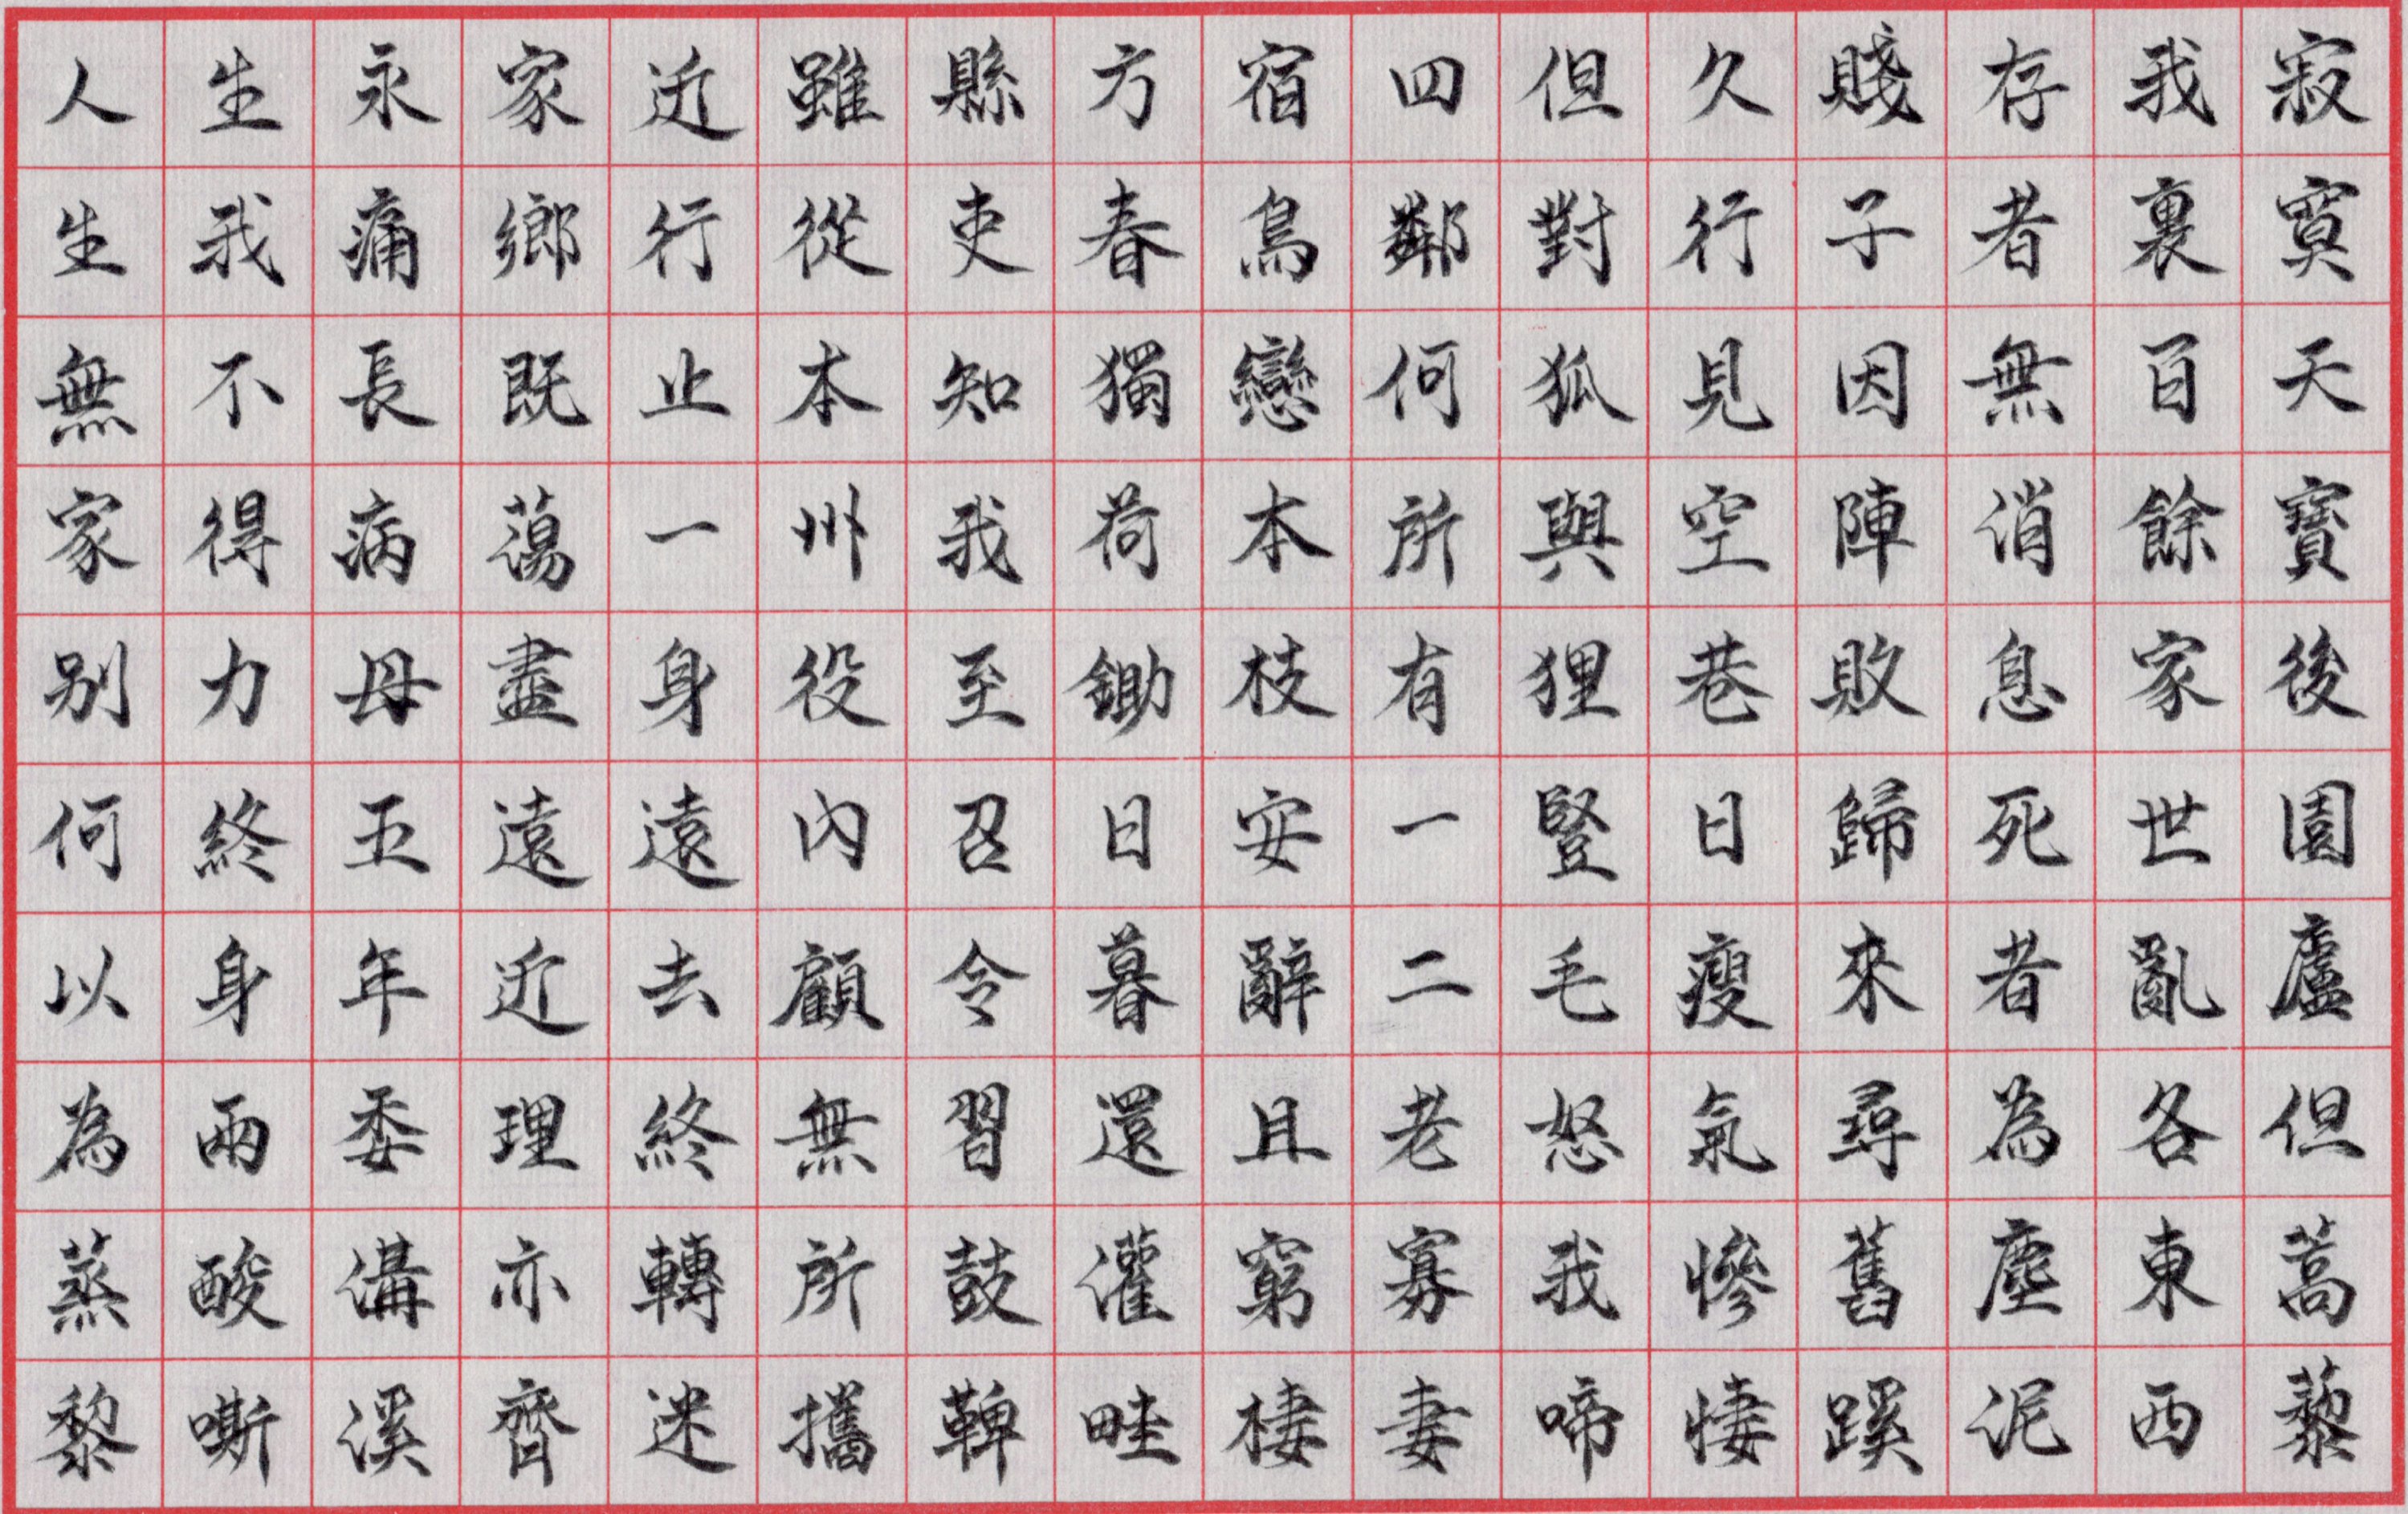 寂寞天寶後園廬但蒿藜
我裏百餘家世亂各東西
存者無消息死者為塵泥
賤子因陣敗歸來尋舊蹊
久行見空巷日瘦氣慘悽
但對狐與狸豎毛怒我啼
四鄰何所有一二老寡妻
宿鳥戀本枝安辭且窮棲
方春獨荷鋤日暮還灌畦
縣吏知我至召令習鼓鞞
雖從本州役內顧無所攜
近行止一身遠去終轉迷
家鄉既蕩盡遠近理亦齊
永痛長病母五年委溝溪
生我不得力終身兩酸嘶
人生無家别何以為蒸黎